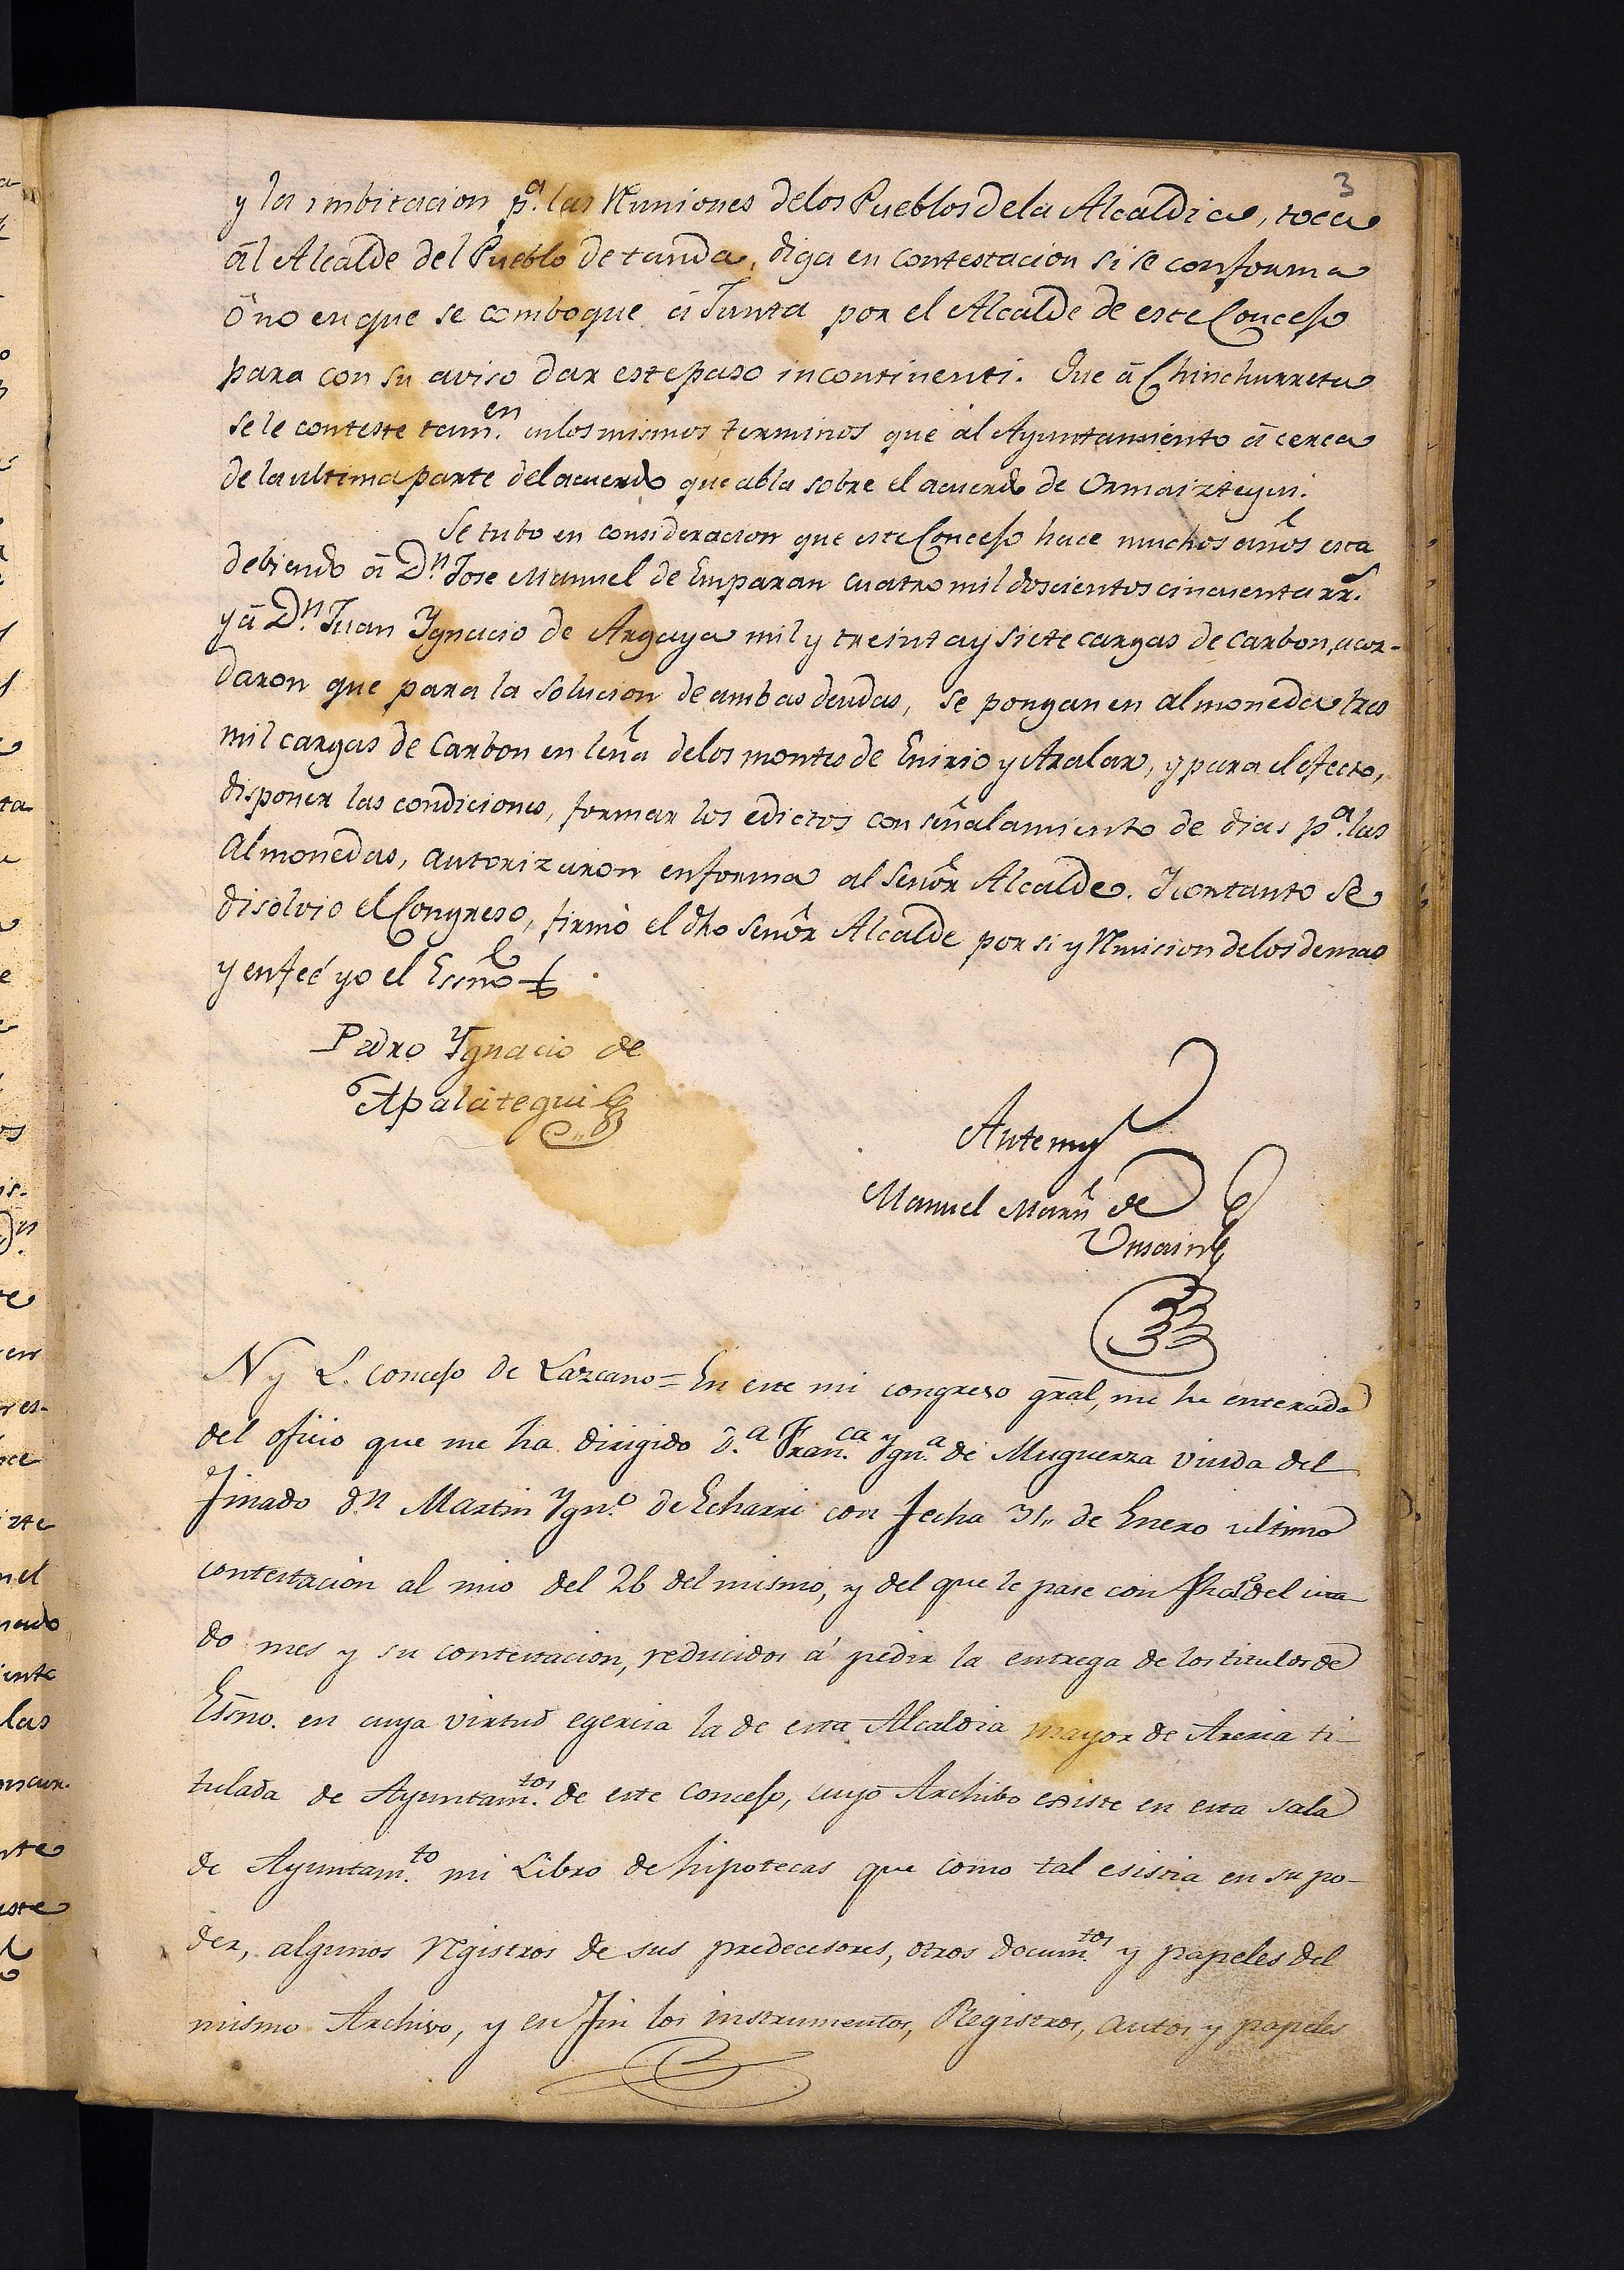 3
y la imbitacion p.ª las Reuniones delos Pueblos dela Alcaldia, toca
ál Alcalde del Pueblo de tanda, diga en contestacion si se conforma
ó no en que se comboque á Junta por el Alcalde de este Concejo
para con su aviso dar este paso incontinenti. Que á Chinchurreta
se le conteste tam.en en los mismos terminos que ál Ayuntamiento á cerca
de la ultima parte del acuerdo que abla sobre el acuerdo de Ormaiztegui.
Se tubo en consideracion que este Concejo hace muchos años esta
debiendo á D.n Jose Manuel de Emparan cuatro mil doscientos cincuenta rr.s
y á D.n Juan Ygnacio de Argaya mil y treinta y siete cargas de carbon, acor-
daron que para la solucion de ambas deudas, se pongan en almoneda tres
mil cargas de Carbon en leña delos montes de Enirio y Aralar, y para el efecto,
disponer las condiciones, formar los edictos con señalamiento de dias p.ª las
Almonedas, autorizaron en forma al Señor Alcalde. Y con tanto se
disolvio el Congreso, firmó el dho Señor Alcalde por si y Reunicion delos demas
y en feé yo el Essno
Pedro Ygnacio de
Apalategui
Antemy
Manuel Marn de
Unsain
N y L. concejo de Lazcano = En este mi congreso gral, me he enterado
del oficio que me ha dirigido D.ª Fran.ca Ygn.ª de Muguerza viuda del
finado d.n Martin Ygn.o de Echarri con fecha 31,, de Enero ultimo
contestacion al mio del 26 del mismo, y del que le pase con fha del cita
do mes y su contestacion, reducidos á pedir la entrega de los titulos de
Esno. en cuya virtud egercia la de esta Alcaldia mayor de Areria ti-
tulada de Ayuntam.tos de este concejo, cuyo Archibo existe en esta sala
de Ayuntam.to mi Libro de hipotecas que como tal esistia en su po-
der, algunos Registros de sus predecesores, otros docum.tos y papeles del
mismo Archivo, y en fin los instrumentos, Registros, autos y papeles